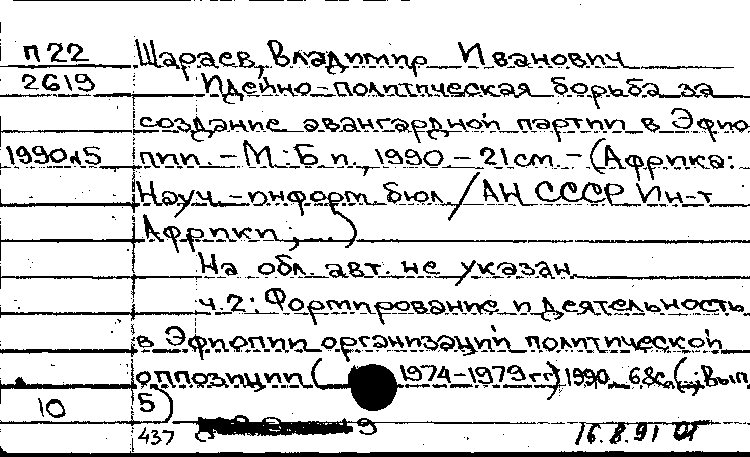 П22 Шараев, Владимир Иванович
2619 Идейно-политическая борьба за
создание авангардной партии в Эфио-
1990н5 пии. - М.: Б.п., 1990 - 21 см - (Африка:
Науч.-информ. бюл / АН СССР Ин-т
Африки; ...)
На обл. авт. не указан.
ч.2: Формирование и деятельность
в Эфиопии организаций политической
оппозиции ( 1974-1979 гг) 1990 68с. (...; Вып
10 5)
437 9 16.8.91